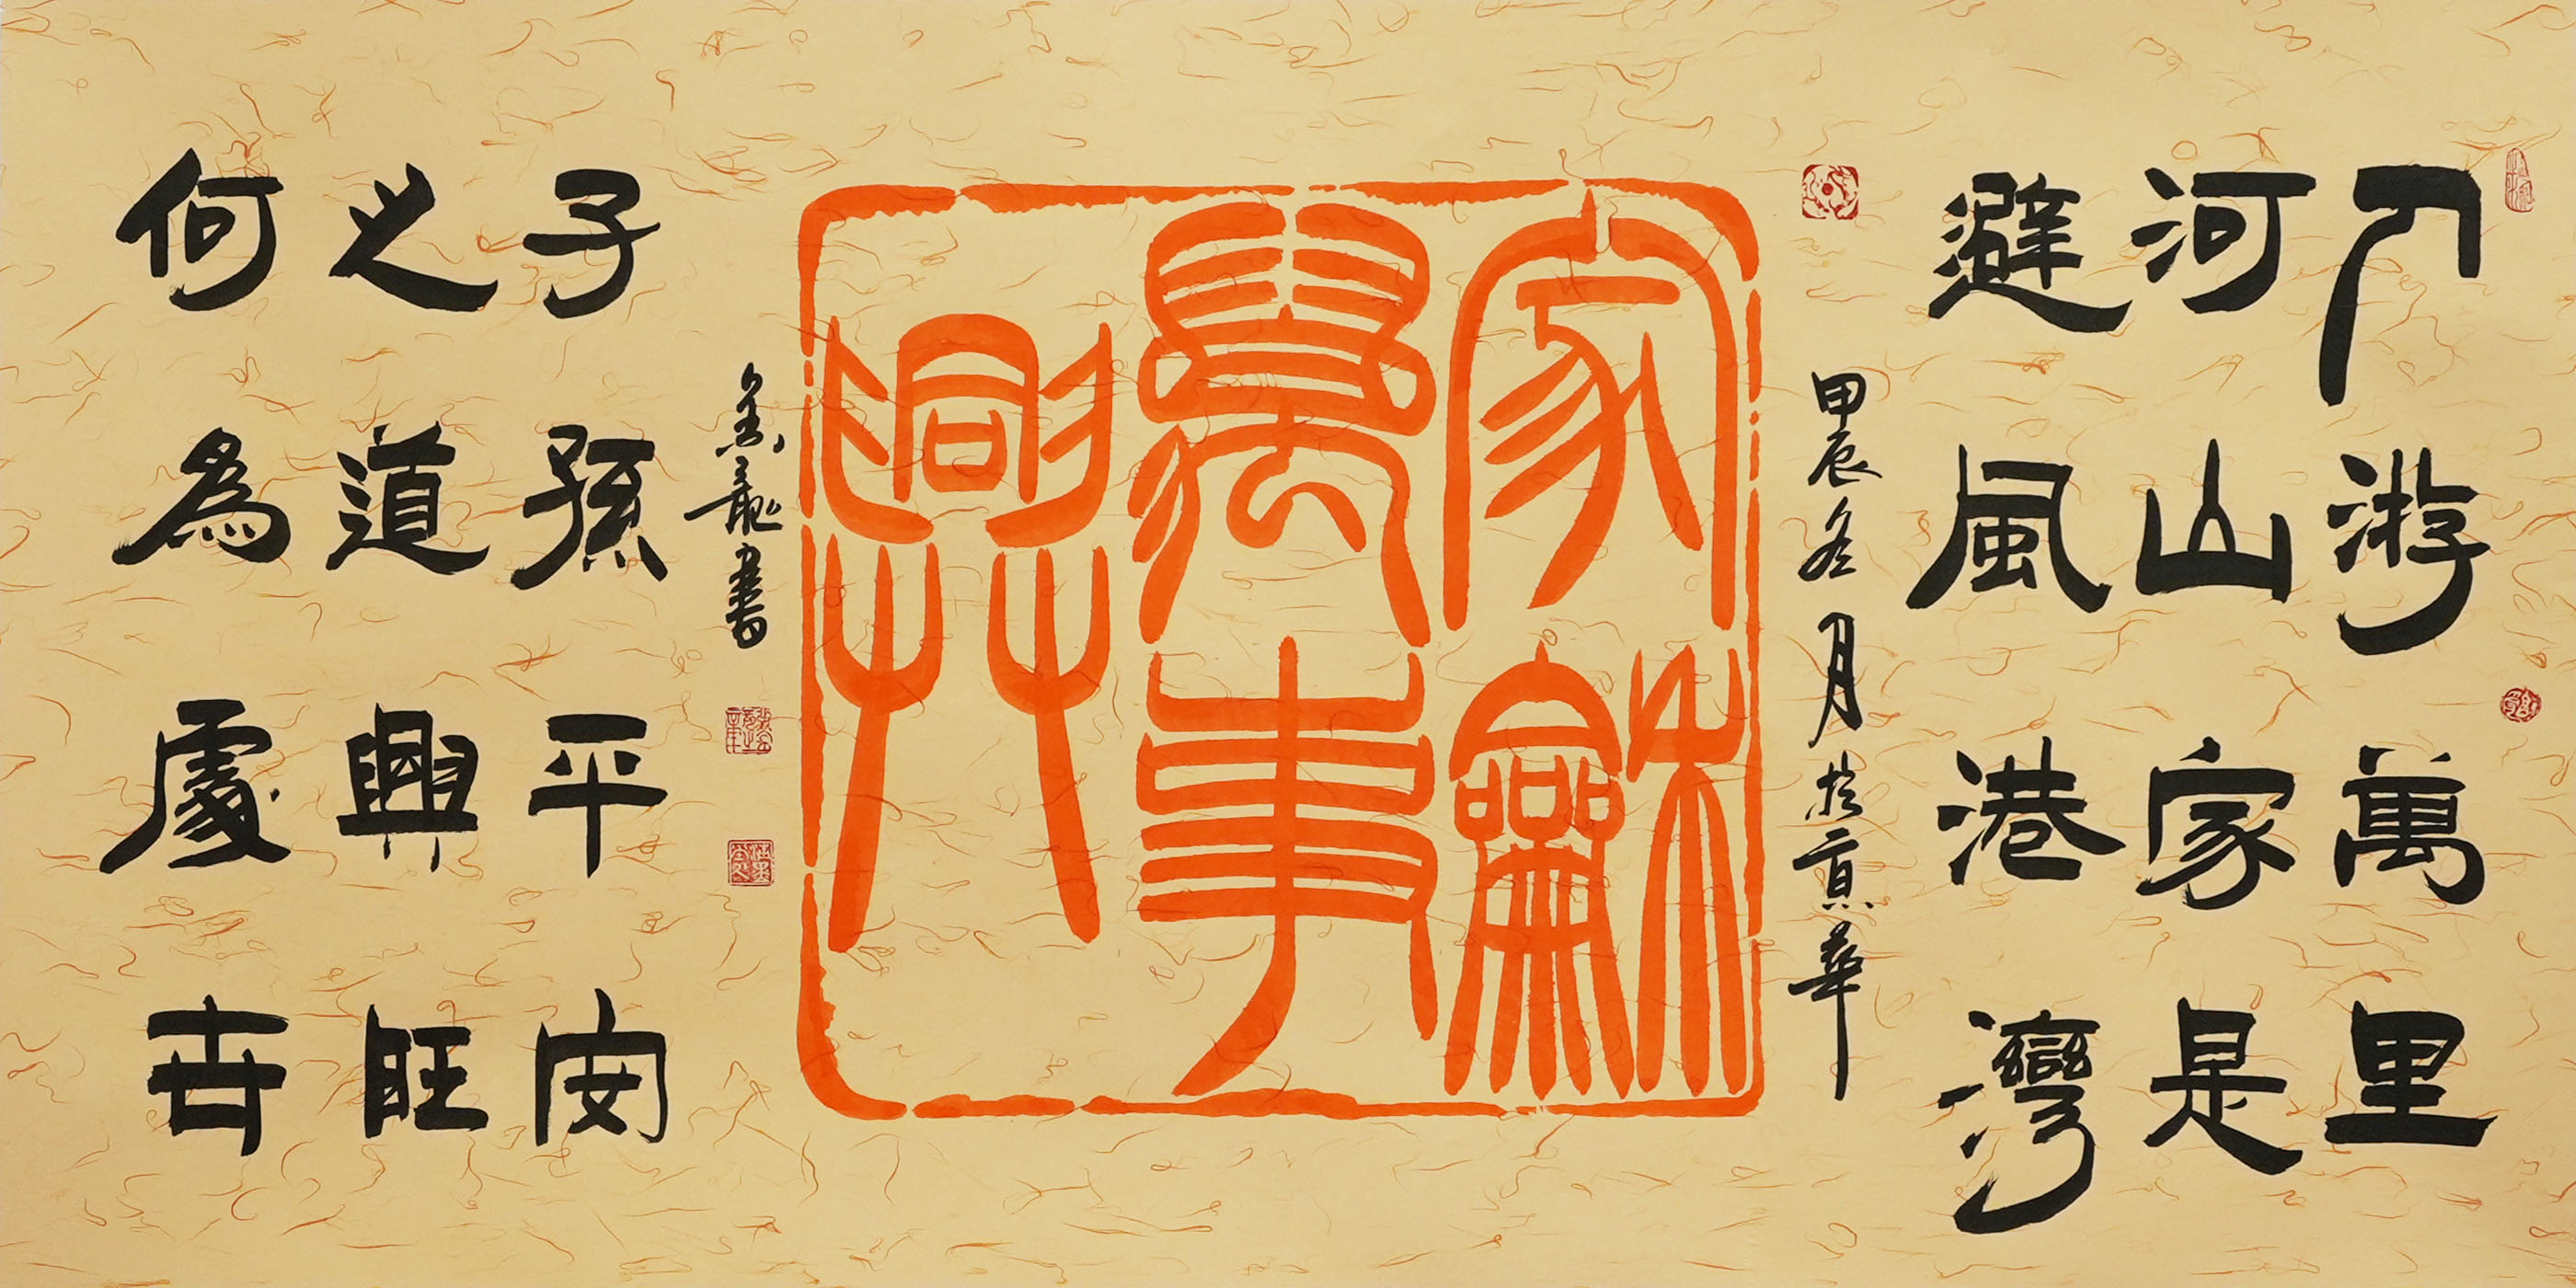 人游萬里
河山家是
避風港灣
甲辰冬月於京華
家龢
萬事
興
金龍書
子孫平安
之道興旺
何為處世